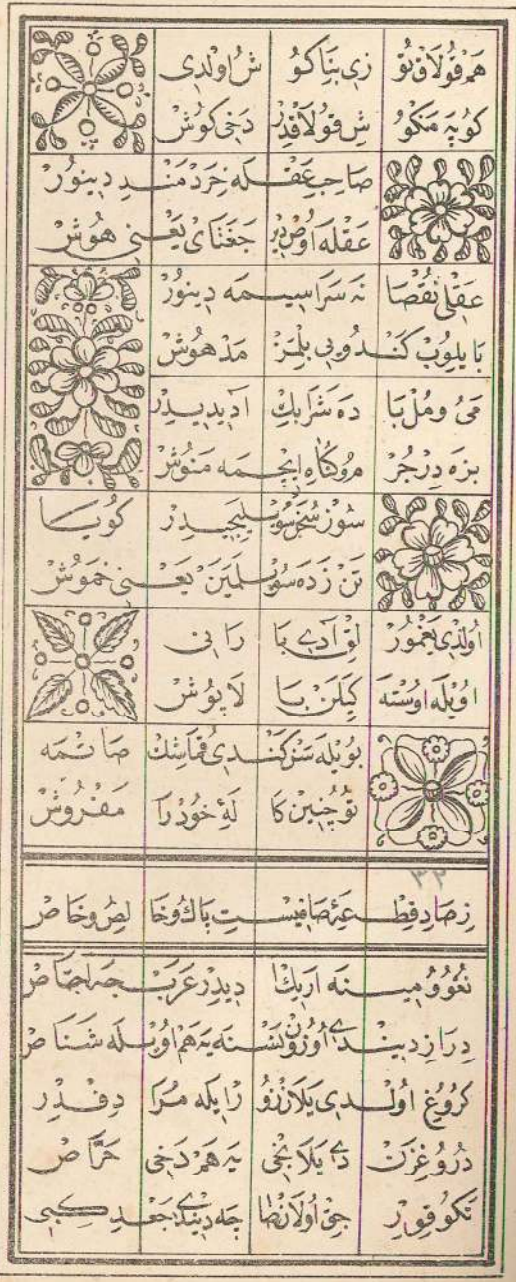 هم قولاق تو زی بناکو ش اولدی
کوپه منکو ش قولاقدر دخی کوش
صاحب عقله خردمند دینور
عقله اوص دیر جغتای یعنی هوش
عقلی نقصا نه سراسیمه دینور
بایلوب کندوبی بلمز مدهوش
می و مل با ده شرابک آدیدر
بزه در جر مزوکاه ایچمه منوش
سوز سخن سویلیجیدر کویا
تن زده سویلمین یعنی خموش
اولدی یغمور لق آدی با رانی
اویله اوسته کیلن با لاپوش
بویله سن کندی قماشک صاتمه
تو چنین کا لهٔ خود را مفروش
۳۲
ز صاد قطعهٔ صافیست پاک و خالص و خاص
دیدر عرب اجاص
دراز دیندی اوزون نسنه یه هم اویله شناص
کروغ اولدی یلان
دروغزن دی یلانجی یه هم دخی خراص
جعد کبی